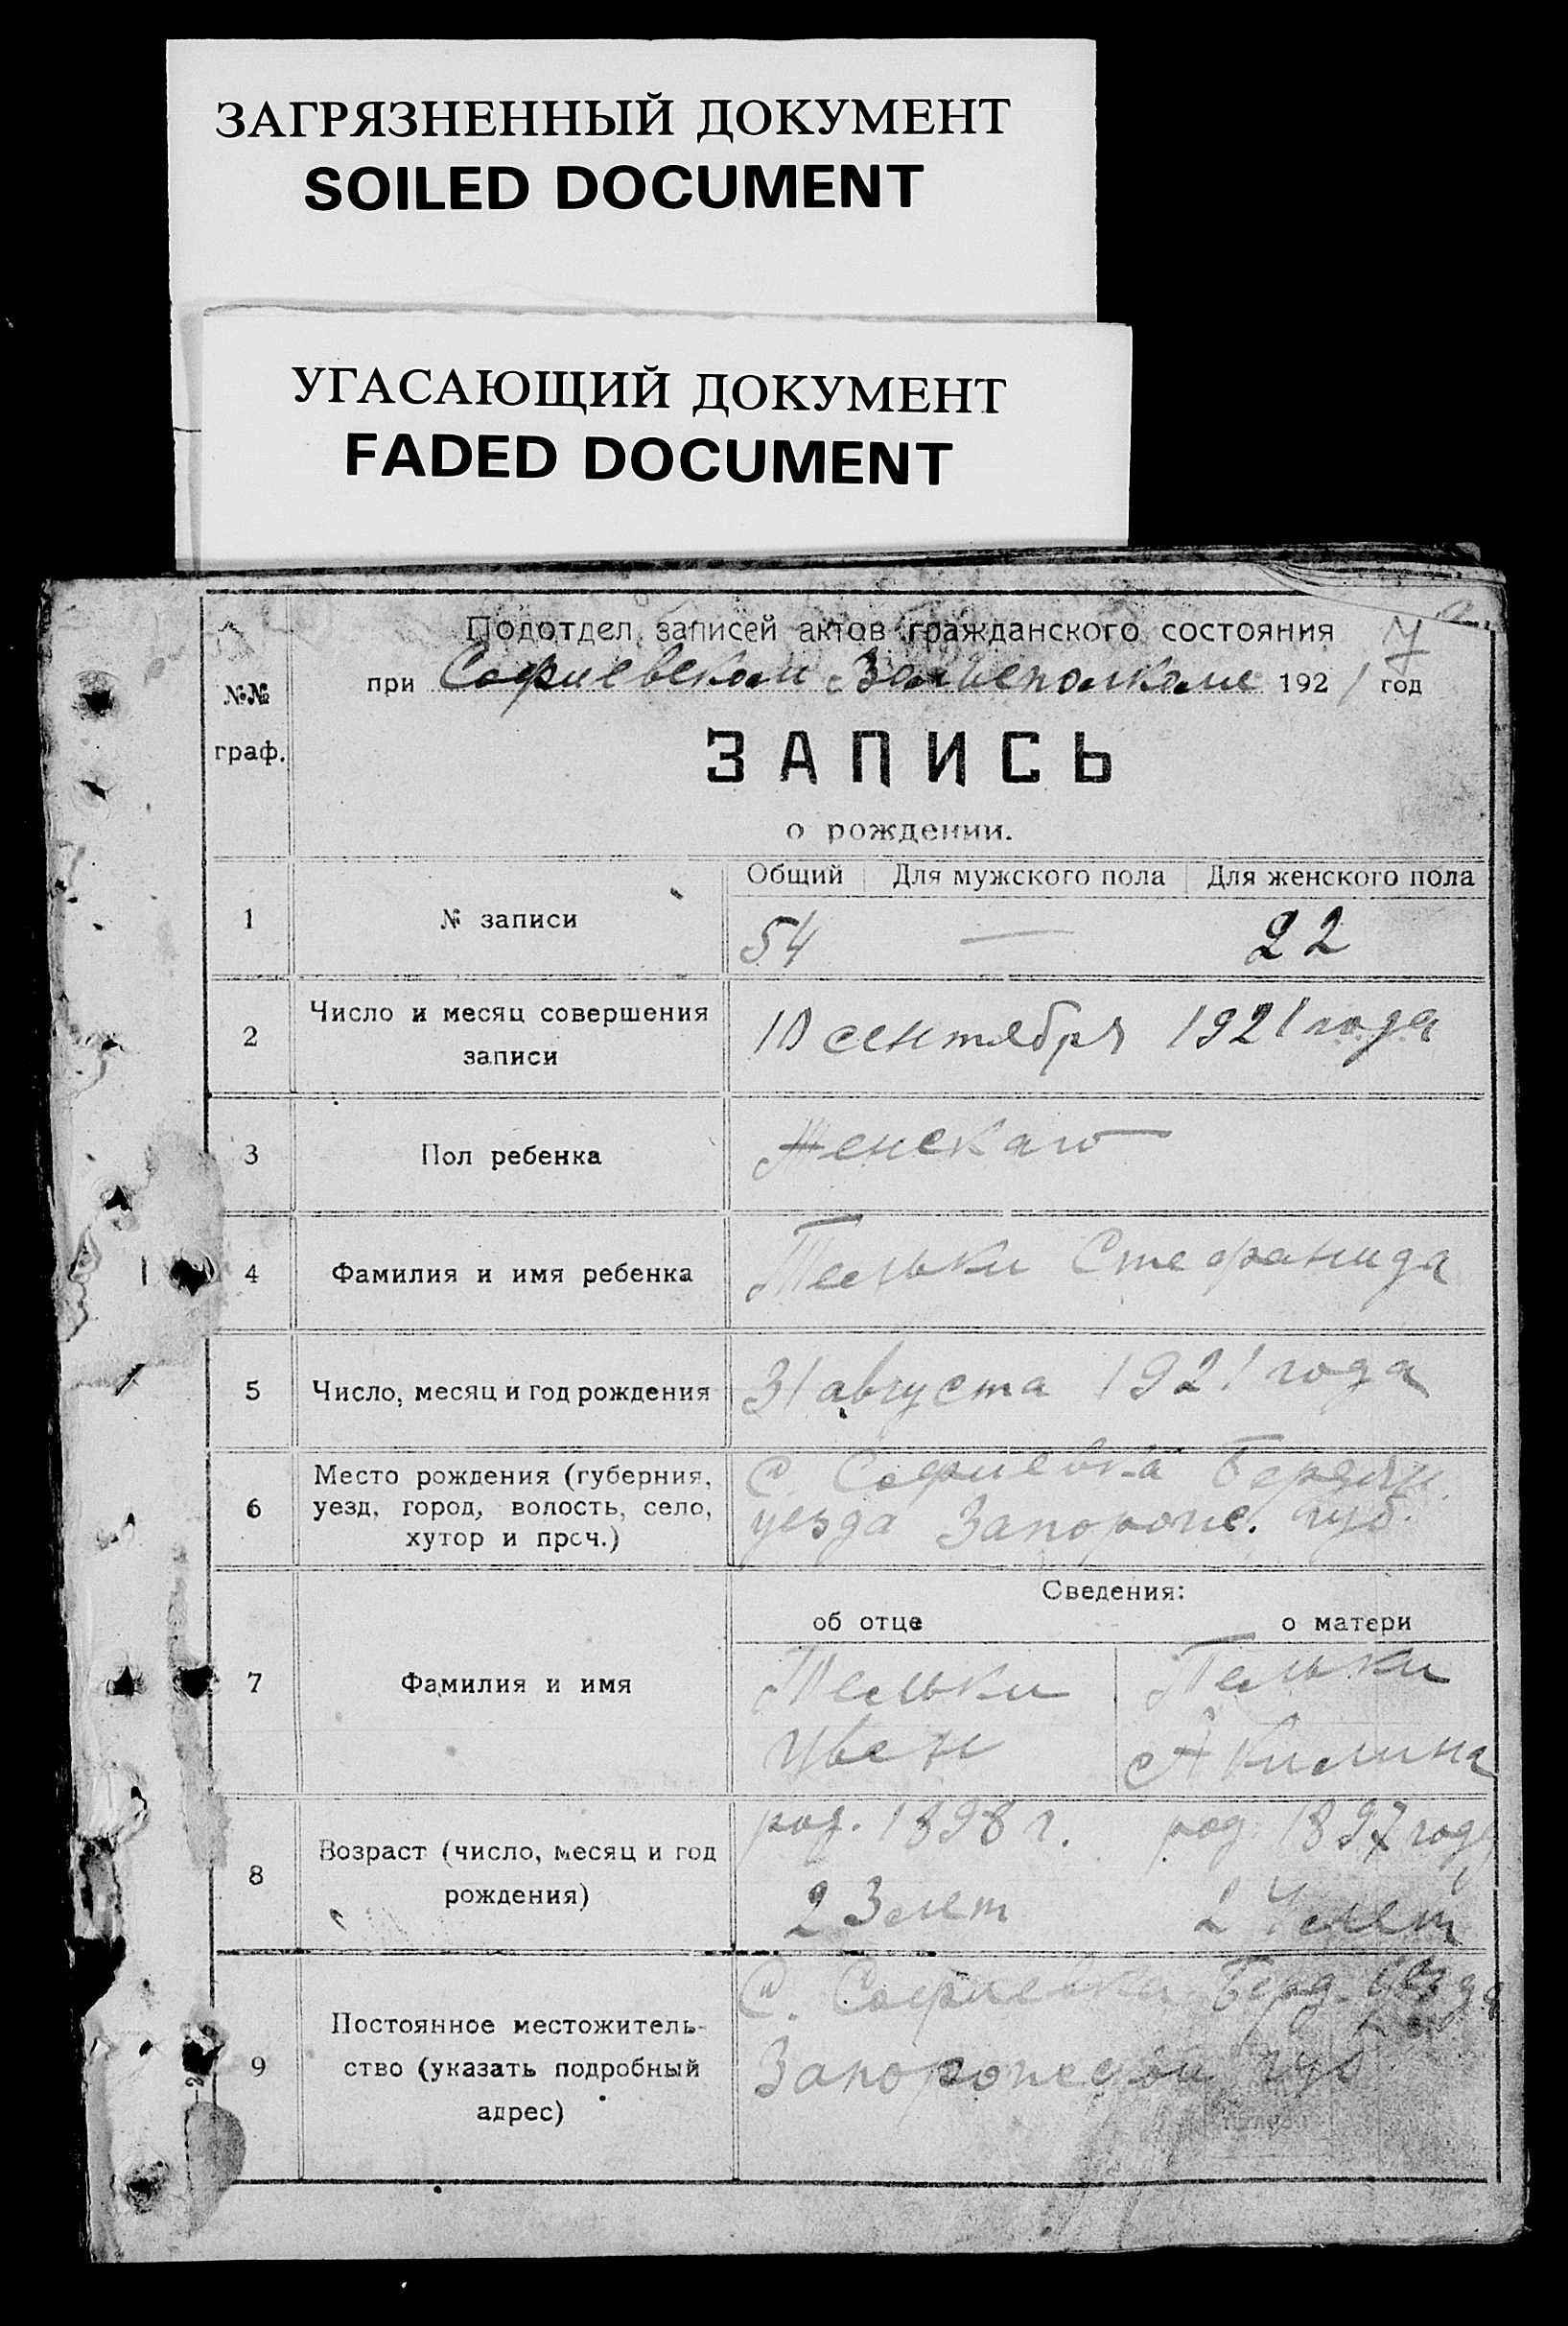 ЗАГРЯЗНЕННЫЙ ДОКУМЕНТ
SOILED DOCUMENT
УГАСАЮЩИЙ ДОКУМЕНТ
FADED DOCUMENT
7
Подотдел записей актов гражданского состояния
при Софиевском 1921 год
№№
граф.
ЗАПИСЬ
о рождении.
Общий Для мужского пола Для женского пола
1 № записи 54 — 22
2 Число и месяц совершения записи 10 сентября 1921 года
3 Пол ребенка Женскаго
4 Фамилия и имя ребенка Тельки Стефанида
5 Число, месяц и год рождения 31 августа 1921 года
6 Место рождения (губерния, уезд, город, волость, село, хутор и проч.)
С Софиевка Бердян.
уезда Запорож. губ.
Сведения:
об отце о матери
7 Фамилия и имя
Тельки Тельки
Ивен Акилина
8 Возраст (число, месяц и год рождения)
род. 1898 г. род. 1897 года
23 лет 24 лет
9 Постоянное местожительство (указать подробный адрес)
С. Софиевка Берд. уезда
Запорожской губ